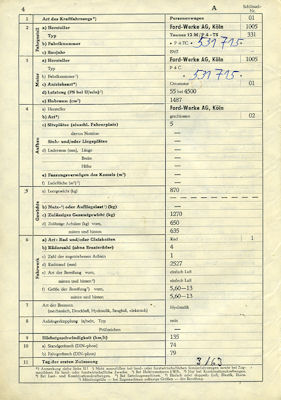 4 A
1 Art des Kraftfahrzeugs*) Personenwagen 01
2 a) Hersteller Ford-Werke AG, Köln 1005
Typ Taunus 12 M/P 4 - TS 331
b) Fabriknummer 531 715
c) Baujahr
3 a) Hersteller Ford-Werke AG, Köln 1005
Typ P 4 C
b) Fabriknummer
c) Antriebsart 01
d) Leistung (PS bei U/min) 55 bei 4500
e) Hubraum (cm³) 1487
4 a) Hersteller Ford-Werke AG, Köln 1005
b) Art geschlossen 02
c) Sitzplätze (einschl. Fahrerplatz) 5
davon Notsitze —
Steh- und/oder Liegeplätze —
d) Laderaum (mm), Länge —
Breite —
Höhe —
e) Fassungsvermögen des Kessels (m³) —
f) Ladefläche (m²) —
5 a) Leergewicht (kg) 870
b) Nutz- oder Aufliegelast (kg) —
c) Zulässiges Gesamtgewicht (kg) 1270
d) Zulässige Achslast (kg) vorn, 650
mitten und hinten 635
6 a) Art: Rad und/oder Gleisketten Rad 1
b) Räderzahl (ohne Ersatzräder) 4
c) Zahl der angetriebenen Achsen 1
d) Radstand (mm) 2527
e) Art der Bereifung vorn, einfach Luft
mitten und hinten einfach Luft
f) Größe der Bereifung vorn, 5,60—13
mitten und hinten 5,60—13
7 Art der Bremsen hydraulisch
(mechanisch, Druckluft, Hydraulik, Saugluft, elektrisch)
8 Anhängerkupplung ja/nein, Typ nein
Prüfzeichen —
9 Höchstgeschwindigkeit (km/h) 135
10 a) Standgeräusch (DIN-phon) 74
b) Fahrgeräusch (DIN-phon) 79
11 Tag der ersten Zulassung